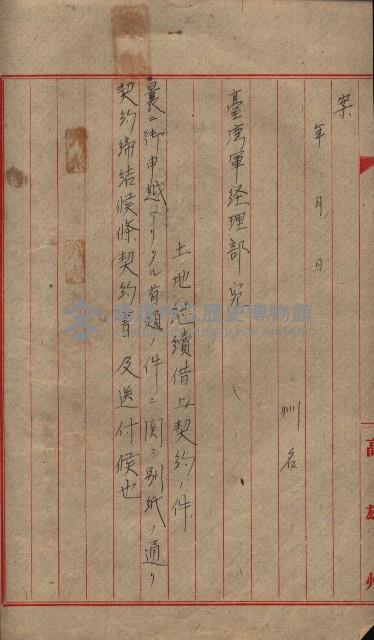 案
年 月 日
州名
臺湾軍経理部 宛
土地継續借上契約ノ件
曩ニ御申越アリタル首題ノ件ニ関シ別紙ノ通リ
契約締結候條契約書及送付候也
高雄州
高雄市立歷史博物館